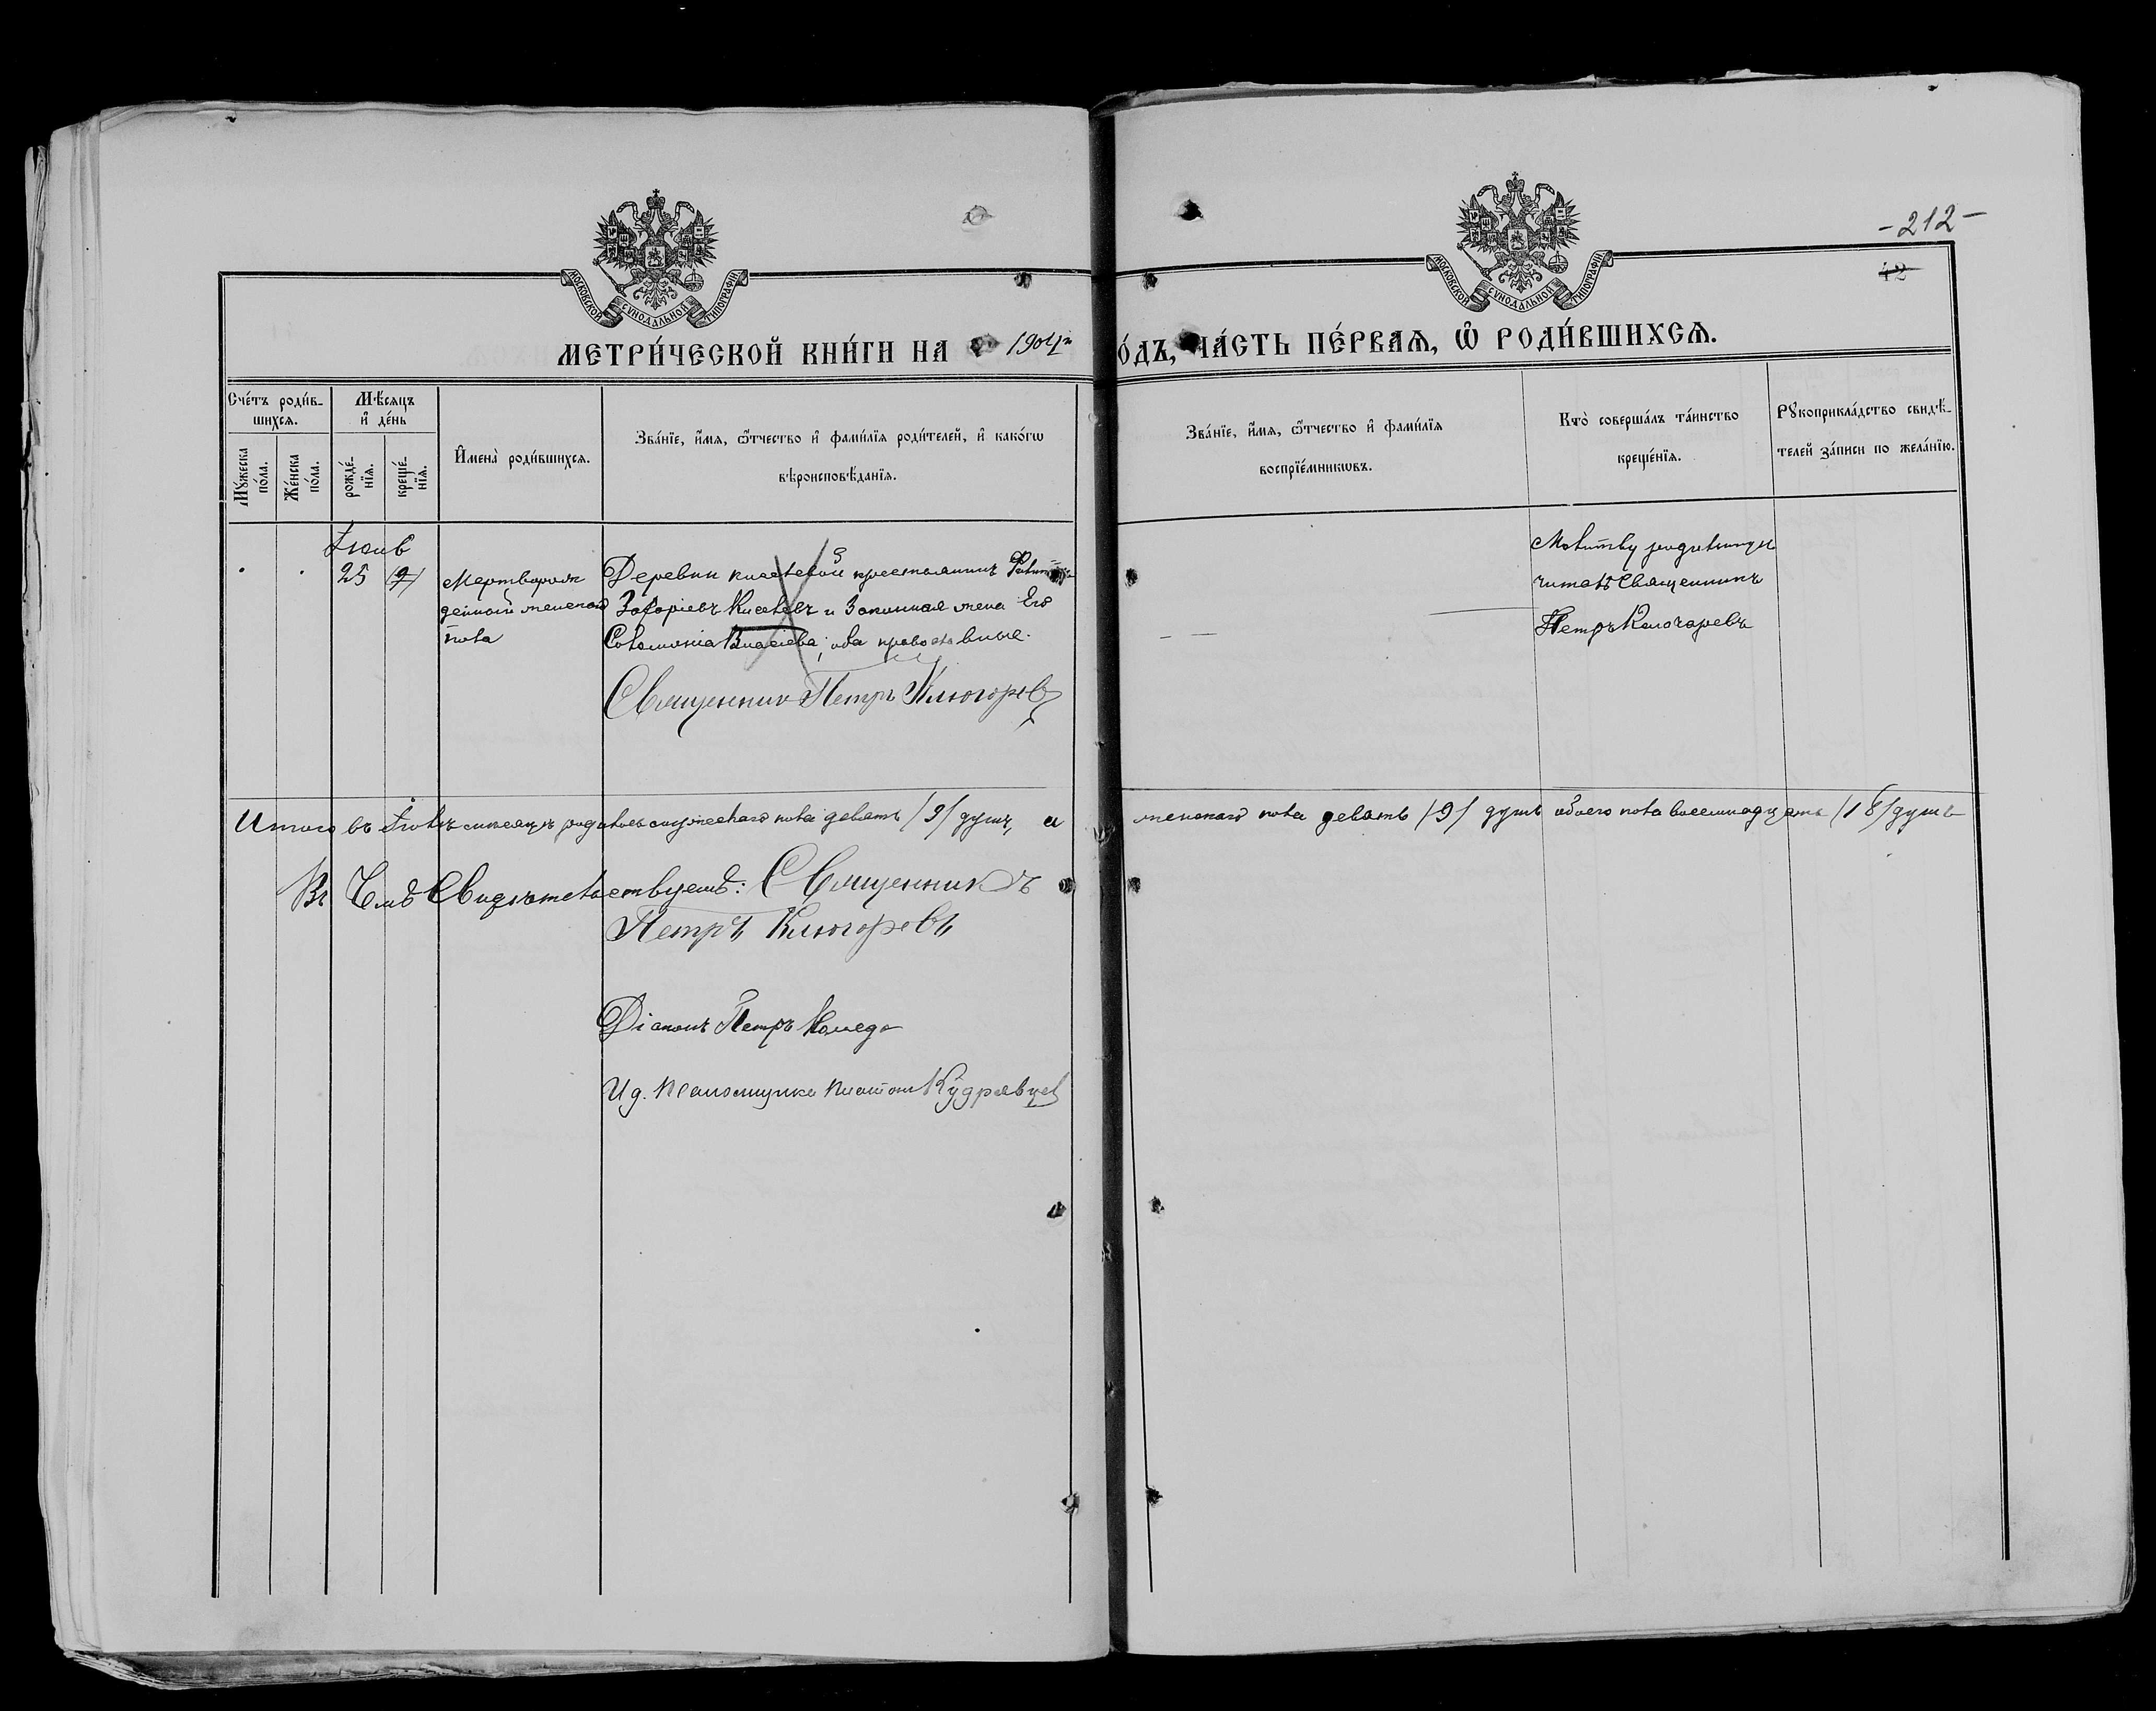 МОСКОВСКОЙ СѴНОДАЛЬНОЙ ТИПОГРАФІИ
МОСКОВСКОЙ СѴНОДАЛЬНОЙ ТИПОГРАФІИ
-212-
42
МЕТРИ́ЧЕСКОЙ КНИ́ГИ НА 1904 О́ДЪ, ЧА́СТЬ ПЕ́РВАѦ, Ѡ҆ РОДИ́ВШИХСѦ.
Сче́тъ роди́в-
шихся.
Мꙋ́жеска
по́ла.
Же́нска
по́ла.
Мѣ́сяцъ
и҆ де́нь
рожде́-
нїя.
креще́-
нїя.
И҆мена̀ роди́вшихся.
Зва́нїе, и҆́мя, ѻ҆́тчество и҆ фами́лїя роди́телей, и҆ како́гѡ
вѣроисповѣ́данїя.
Зва́нїе, и҆́мя, ѻ҆́тчество и҆ фами́лїя
воспрїе́мникѡвъ.
Кто̀ соверша́лъ та́инство
креще́нїя.
Рꙋкоприкла́дство свидѣ́-
телей за́писи по жела́нїю.
Іюнь
25
Мертворож
денный женскаго
пола
Деревни Киселевой крестьянинъ
Захаріевъ Киселевъ и Законная жена Его
Соломонія Власіева; оба православные.
Священник Петръ Ключарев
Молитву родильницы
читалъ Священникъ
Петръ Ключаревъ
Итого въ месяцѣ родилось мужескаго пола девять /9/ душъ, а женскаго пола девять /9/ душъ обоего пола восемнадцать /18/ душъ
Въ Семъ Свидѣтельствуемъ: Священникъ
Петръ Ключаревъ
Діаконъ Петръ
И д. Псаломщика Платон Кудрявцев